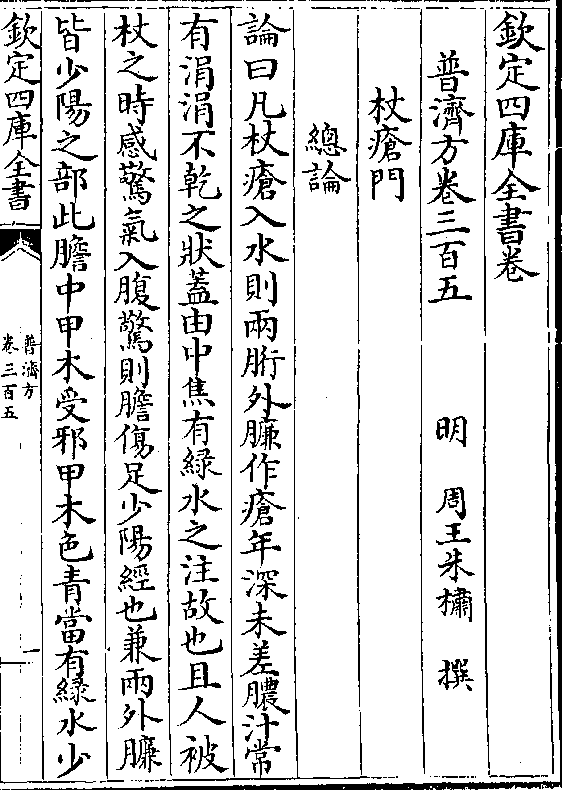 欽定四庫全書卷
普濟方卷三百五　明　周王朱橚　撰
杖瘡門
總論
論曰凡杖瘡入水則兩胻外臁作瘡年深未差膿汁常
有涓涓不乾之狀蓋由中焦有綠水之注故也且人被
杖之時感驚氣入腹驚則膽傷足少陽經也兼兩外臁
皆少陽之部此膽中甲木受邪甲木色青當有綠水少
欽定四庫全書
普濟方
卷三百五
一